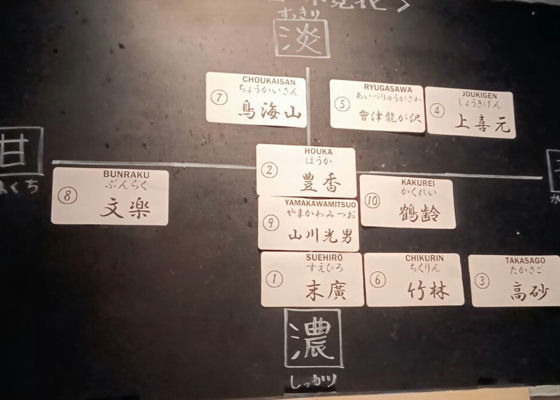 すっきり
淡
CHOUKAISAN
ちょうかいさん
⑦ 鳥海山
RYUGASAWA
あいづりゅうがさわ
⑤ 會津龍が沢
JOUKIGEN
じょうきげん
④ 上喜元
甘
くち
HOUKA
ほうか
② 豊香
BUNRAKU
ぶんらく
⑧ 文楽
KAKUREI
かくれい
⑩ 鶴齢
YAMAKAWAMITSUO
やまかわみつお
⑨ 山川光男
SUEHIRO
すえひろ
① 末廣
CHIKURIN
ちくりん
⑥ 竹林
TAKASAGO
たかさご
③ 高砂
濃
しっかり